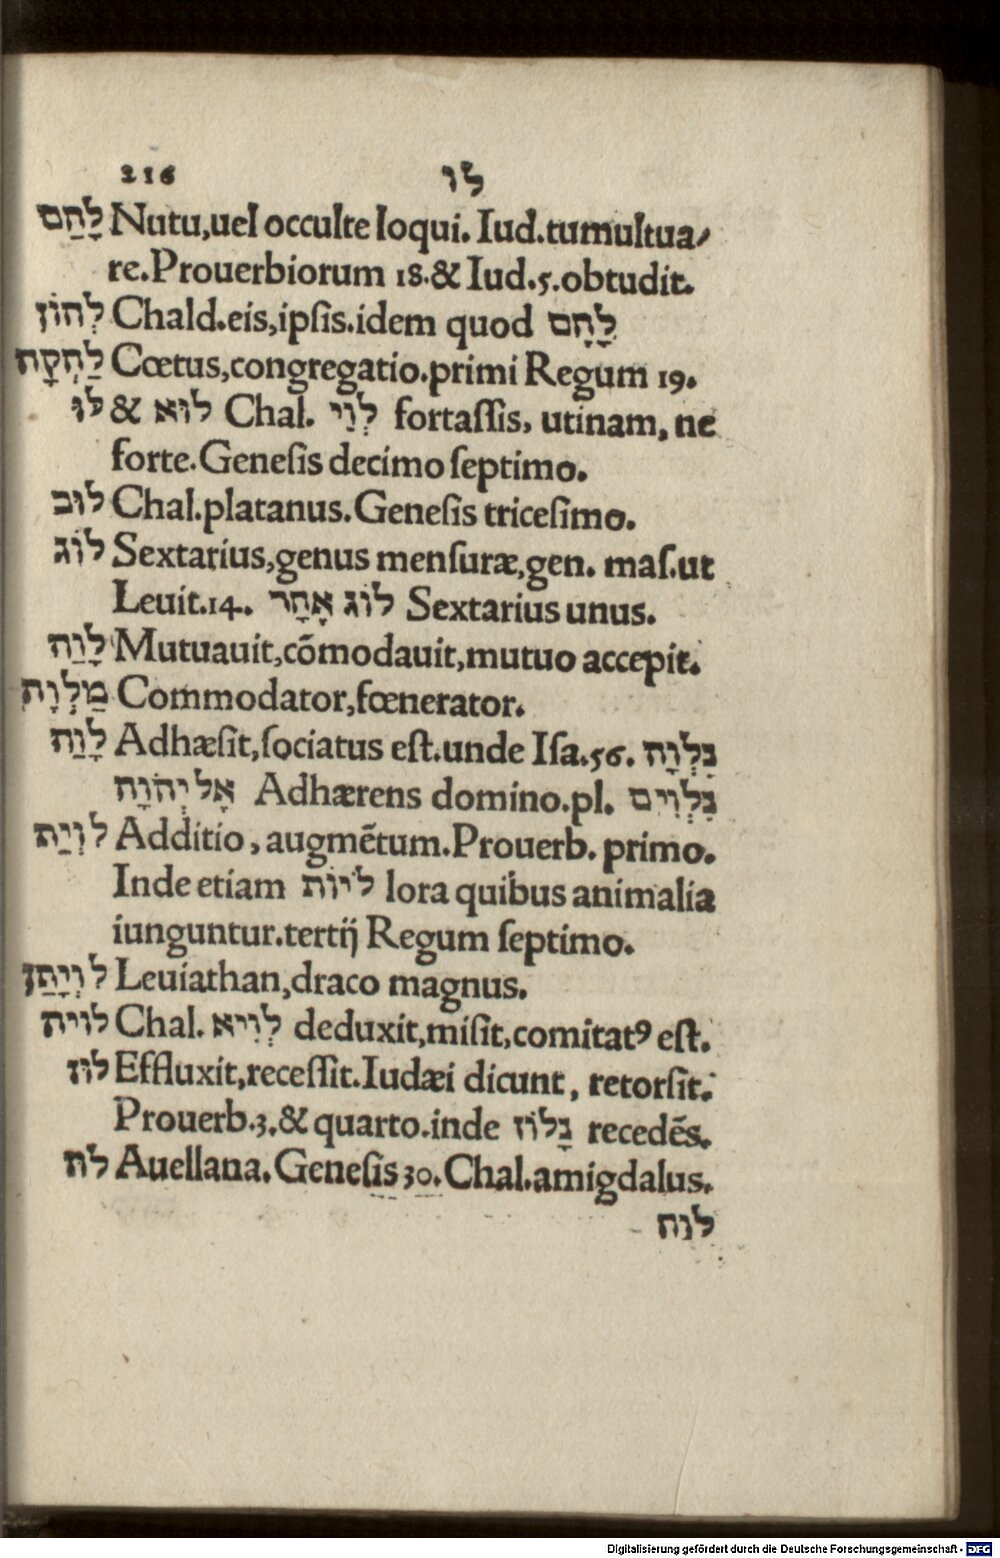 216 לו
לָהַם Nutu,uel occulte loqui. Iud.tumultua⸗
re.Prouerbiorum 18.& Iud.5.obtudit.
לְהוֹן Chald.eis,ipſis.idem quod לָהָם
לַהֲקָה Cœtus,congregatio.primi Regum 19.
לוּ & לוּא Chal. לְוַי fortaſſis, utinam, ne
forte.Geneſis decimo ſeptimo.
לוּב Chal.platanus.Geneſis triceſimo.
לוֹג Sextarius,genus menſuræ,gen. maſ.ut
Leuit.14. לוֹג אֶחָד Sextarius unus.
לָוַה Mutuauit,cõmodauit,mutuo accepit.
מַלְוֶה Commodator,fœnerator.
לָוַה Adhæſit,ſociatus eſt.unde Iſa.56. נִלְוָה
אֶל יְהֹוָה Adhærens domino.pl. נִלְוִים
לִוְיַת Additio, augmẽtum.Prouerb. primo.
Inde etiam לֹיוֹת lora quibus animalia
iunguntur.tertij Regum ſeptimo.
לִוְיָתַן Leuiathan,draco magnus.
לויה Chal. לְוִיא deduxit,miſit,comitatꝰ eſt.
לוּז Effluxit,receſſit.Iudæi dicunt, retorſit.
Prouerb.3.& quarto.inde נָלוֹז recedẽs.
Auellana.Geneſis 30.Chal.amigdalus.
לוח
Digitalisierung gefördert durch die Deutsche Forschungsgemeinschaft - DFG